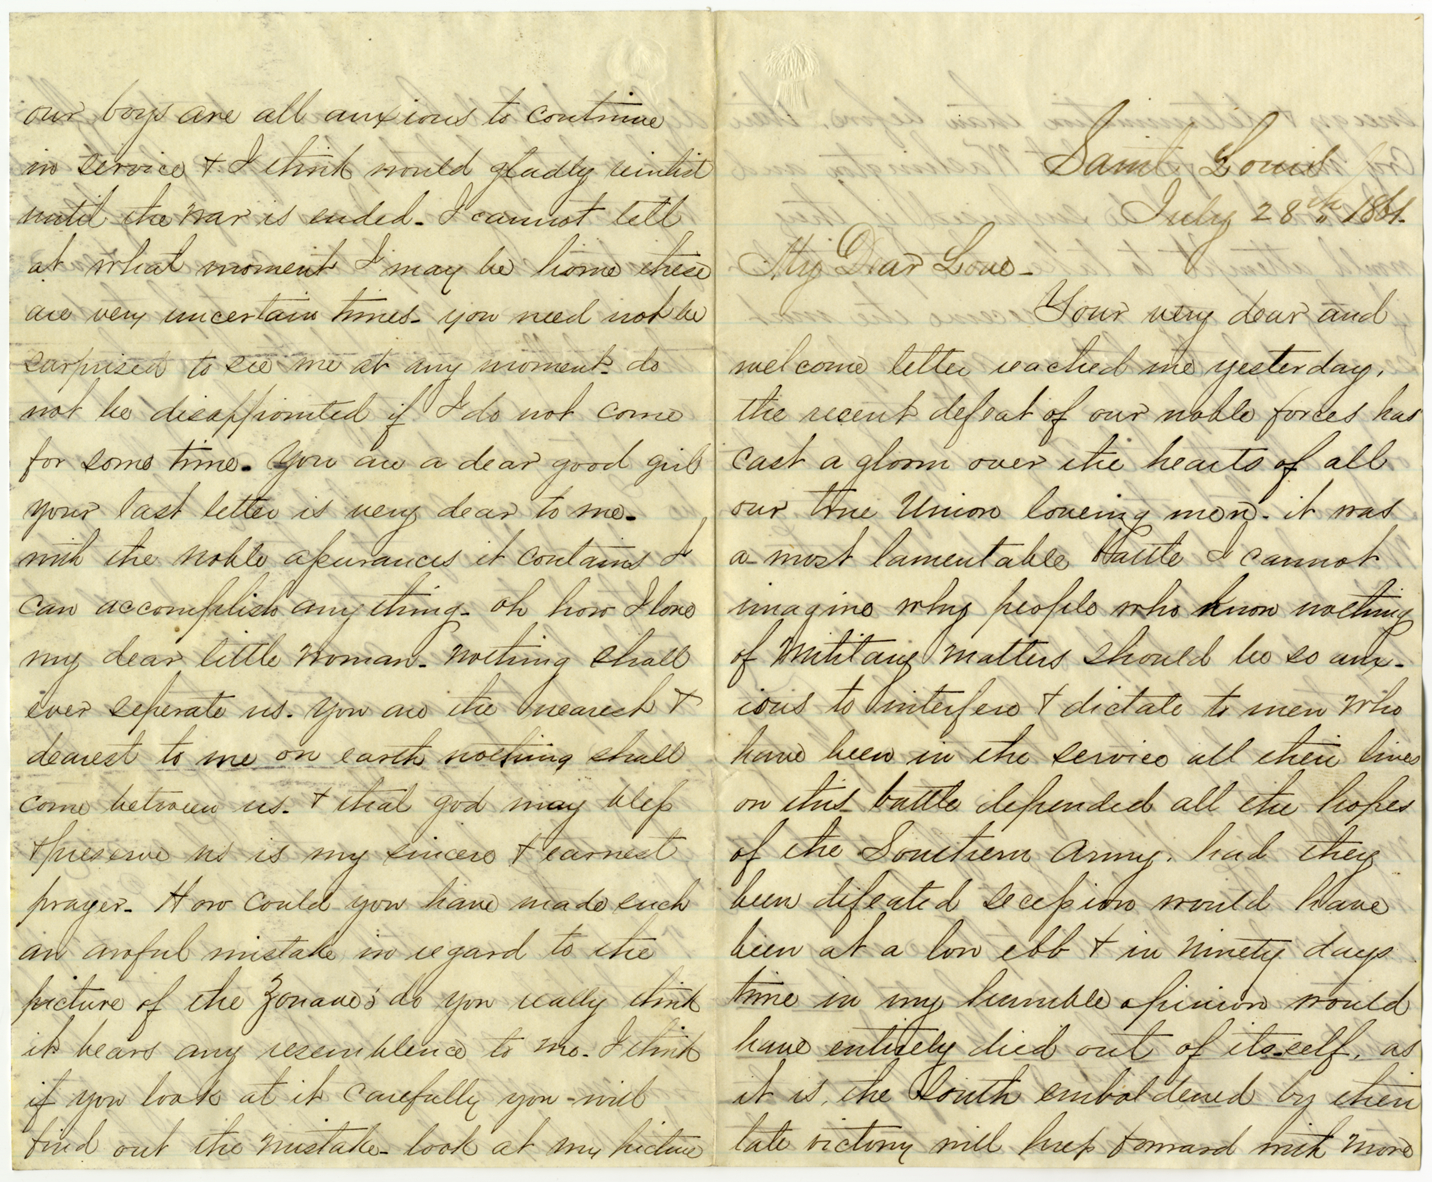 Saint Louis
July 28th 1861.
My Dear Love-
Your very dear and
welcome letter reached me yesterday.
the recent defeat of our noble forces has
cast a gloom over the hearts of all
our true Union loveing men. it was
a most lamentable Battle I cannot
imagine why people who know nothing
of Military matters should be so anx-
ious to interfere & dictate to men who
have been in the service all their lives
on this battle depended all the hopes
of the Southern Army. had they
been defeated secession would have
been at a low ebb & in ninety days
time in my humble opinion would
have entirely died out of its-self, as
it is, the South emboldened by their
late victory will keep forward with more
our boys are all anxious to continue
in service & I think would gladly reinlist
until the war is ended- I cannot tell
at what moment I may be home these
are very uncertain times- you need not be
surprised to see me at any moment- do
not be disappointed if I do not come
for some time- You are a dear good girl
your last letter is very dear to me-
with the noble assurances it contains I
can accomplish any thing- oh how I love
my dear little woman- nothing shall
ever seperate us- you are the nearest &
dearest to me on earth nothing shall
come between us- & that god may bless
& preserve us is my sincere & earnest
prayer- How could you have made such
an awful mistake in regard to the
picture of the Zouave's do you really think
it bears any resemblence to me- I think
if you look at it carefully you will
find out the mistake- look at my picture